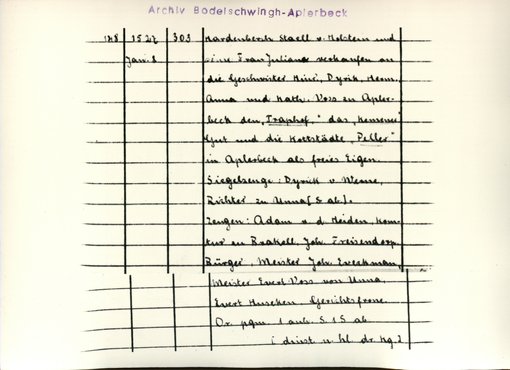 Archiv Bodelschwingh-Aplerbeck
148 1527 303 Hardenberch Staell v. Holstein und
Jan. 8 seine Frau Juliana verkaufen an
die Geschwister Hinr., Dyrik, Herm.
Anna und Kath. Voss zu Apler-
beck den „Traphof," das „
Gut und die Kottstädte „Peller"
in Aplerbeck als freies Eigen.
Siegelzeuge: Dyrik v. Weme,
Richter zu Unna [S ab].
Zeugen: Adam v. d. Heiden, Kom-
tur zu Brakell. Joh. Freisendorp
Bürger, Meister Joh.
Meister Evert Voss von Unna,
Evert Gerichtsfrone.
Or. pgm. 1 anh. S. 1 S ab